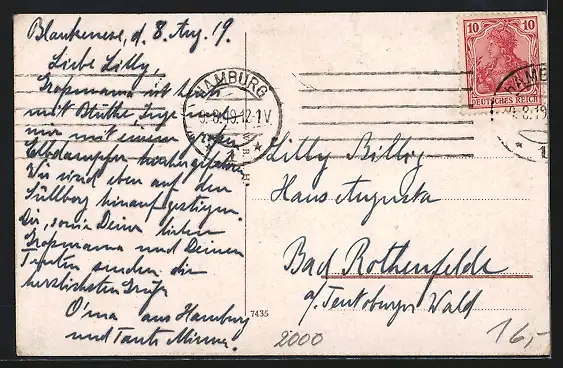 Blankenese, d. 8. Aug. 19.
Liebe Lilly,
Grossmama ist heute
mit
nur mit einem großen
Elbdampfer hierher gefahren
Wir sind eben auf den
Süllberg hinauf gestiegen.
Dir, sowie Deiner lieben
Grossmama und Deinen
Tanten senden die
herzlichsten Grüße
O'ma aus Hamburg
und Tante Minna.
HAMBURG
9.8.19.12-1V
1
10 10
DEUTSCHES REICH
HAMBURG
8.19
1
Lilly Billig
Haus Augusta
Bad Rothenfelde
a/Teutoburger Wald
7435
2000
16,-